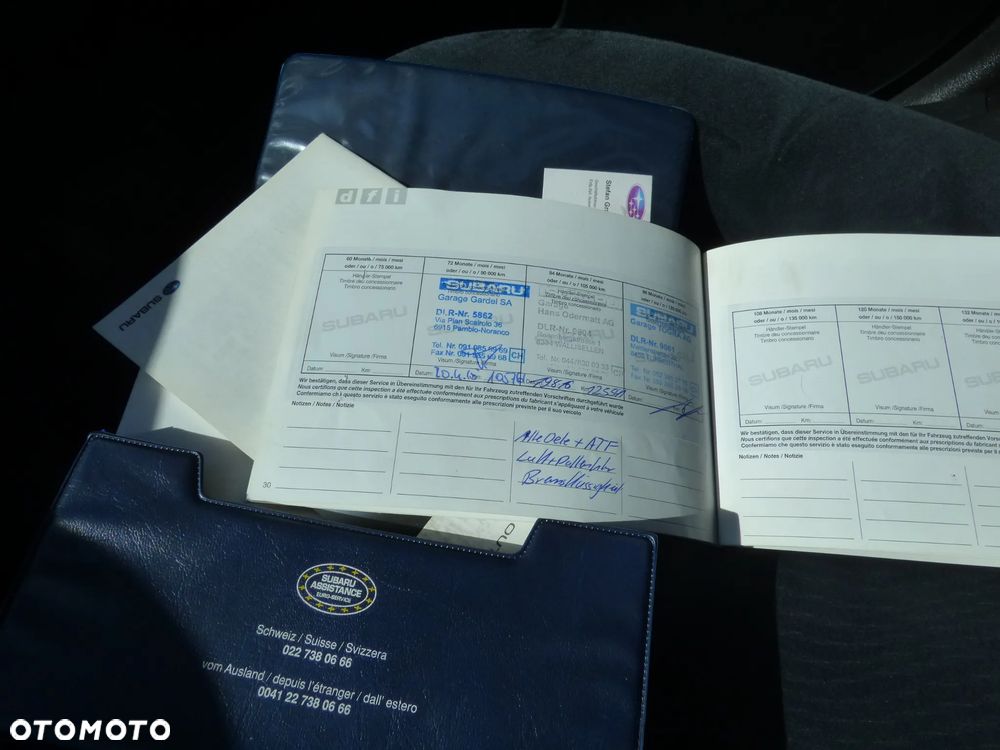 d f i
Stefan
SUBARU
60 Monate / mois / mesi
oder / ou / o / 75 000 km
Händler-Stempel
Timbre du concessionnaire
Timbro concessionario
SUBARU
Visum /Signature /Firma
Datum: Km:
72 Monate / mois / mesi
oder / ou / o / 90 000 km
SUBARU
Timbro concessionario
Garage Gardel SA
DLR-Nr. 5862
Via Pian Scairolo 36
6915 Pambio-Noranco
Tel. Nr. 091 985 69 69
Fax Nr. 091 985 69 68
CH
Visum /Signature /Firma
84 Monate / mois / mesi
oder / ou / o / 105 000 km
Händler-Stempel
Timbre du concessionnaire
Timbro concessionario
Garage
Hans Odermatt AG
8304 WALLISELLEN
Tel. Nr. 044/830 03 33
96 Monate / mois / mesi
SUBARU
DLR-Nr. 9061
Wir bestätigen, dass dieser Service in Übereinstimmung mit den für Ihr Fahrzeug zutreffenden Vorschriften durchgeführt wurde
Nous certifions que cette inspection a été effectuée conformément aux prescriptions du fabricant s'appliquant à votre véhicule
Confermiamo che questo servizio è stato eseguito conformemente alle prescrizioni previste per il suo veicolo
Notizen / Notes / Notizie
Alle Oele + ATF
Luft + Pollenfilter
Bremsflüssigkeit
30
108 Monate / mois / mesi
oder / ou / o / 135 000 km
Händler-Stempel
Timbre du concessionnaire
Timbro concessionario
SUBARU
Visum /Signature /Firma
Datum: Km:
120 Monate / mois / mesi
oder / ou / o / 150 000 km
Händler-Stempel
Timbre du concessionnaire
Timbro concessionario
SUBARU
Visum /Signature /Firma
Datum: Km:
132 Monate
oder / ou / o
Datum:
Wir bestätigen, dass dieser Service in Übereinstimmung mit den für Ihr Fahrzeug zutreffenden
Nous certifions que cette inspection a été effectuée conformément aux prescriptions du fabricant
Confermiamo che questo servizio è stato eseguito conformemente alle prescrizioni previste per
Notizen / Notes / Notizie
SUBARU
ASSISTANCE
EURO-SERVICE
Schweiz / Suisse / Svizzera
022 738 06 66
vom Ausland / depuis l'étranger / dall' estero
0041 22 738 06 66
OTOMOTO